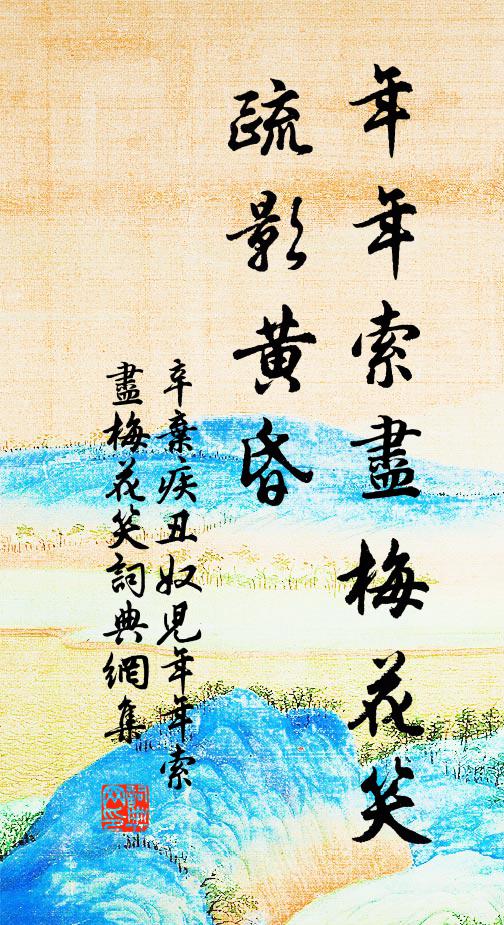 年年索盡梅花笑
疏影黄昏
辛棄疾丑奴児年年索
盡梅花笑詞典網集